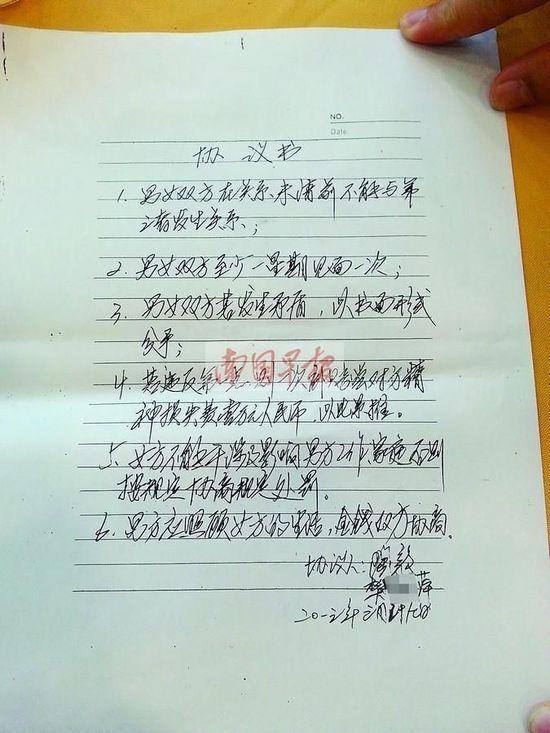 NO.
Date:
协议书
1. 男女双方在关系未清前不能与第
三者发生关系;
2. 男女双方至少一星期见面一次;
3. 男女双方若发生矛盾,以书面形式
公平;
南国早报
4. 若违反第一 次 对方精
神损失费壹万元人民币,以此类推。
5、女方不能干涉及影响男方工作家庭 否则
按规定协商规定处罚。
6、男方应照顾女方的生活,金钱双方协商。
协议人:
萍
二〇一三年